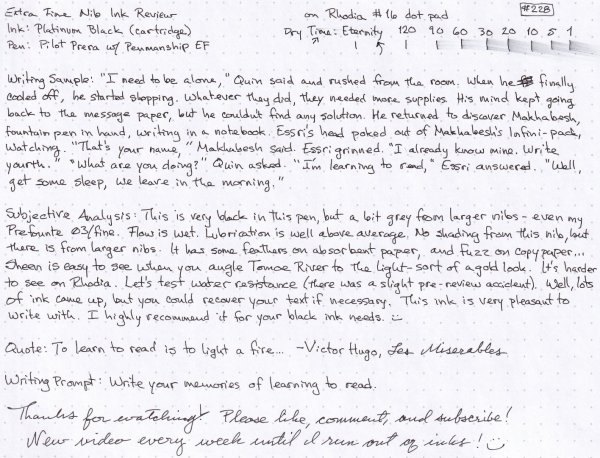 Extra Fine Nib Ink Review on Rhodia #16 dot pad #228
Ink: Platinum Black (cartridge) Dry Time: Eternity 120 90 60 30 20 10 5 1
Pen: Pilot Prera w/ Penmanship EF
Writing Sample: "I need to be alone," Quin said and rushed from the room. When he finally
cooled off, he started shopping. Whatever they did, they needed more supplies. His mind kept going
back to the message paper, but he couldn't find any solution. He returned to discover Makhabesh,
fountain pen in hand, writing in a notebook. Essri's head poked out of Makhabesh's Infini-pack,
watching. "That's your name," Makhabesh said. Essri grinned. "I already know mine. Write
yourth." "What are you doing?" Quin asked. "I'm learning to read," Essri answered. "Well,
get some sleep, we leave in the morning."
Subjective Analysis: This is very black in this pen, but a bit grey from larger nibs - even my
Prefounte 03/fine. Flow is wet. Lubrication is well above average. No shading from this nib, but
there is from larger nibs. It has some feathers on absorbent paper, and fuzz on copy paper...
Sheen is easy to see when you angle Tomoe River to the light - sort of a gold look. It's harder
to see on Rhodia. Let's test water resistance (there was a slight pre-review accident). Well, lots
of ink came up, but you could recover your text if necessary. This ink is very pleasant to
write with. I highly recommend it for your black ink needs. :)
Quote: To learn to read is to light a fire... ~Victor Hugo, Les Miserables
Writing Prompt: Write your memories of learning to read.
Thanks for watching! Please like, comment, and subscribe!
New video every week until I run out of inks! :)